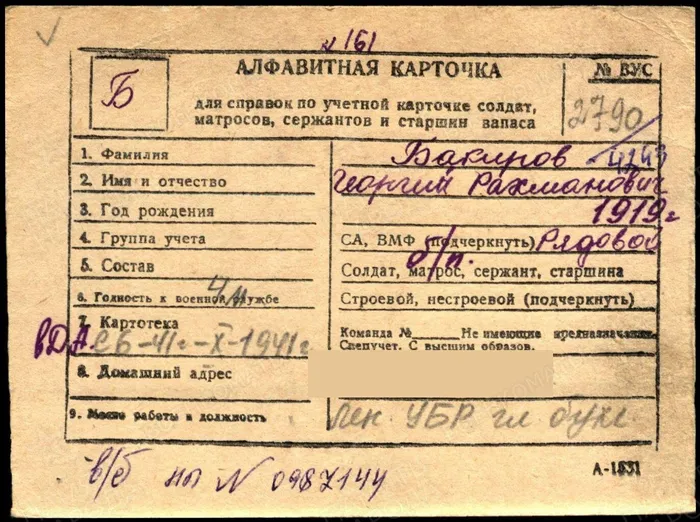 N 161
Б
АЛФАВИТНАЯ КАРТОЧКА
№ ВУС
для справок по учетной карточке солдат,
матросов, сержантов и старшин запаса
2790
4243
1. Фамилия
Бакиров
2. Имя и отчество
Георгий Рахманович
3. Год рождения
1919 г
4. Группа учета
СА, ВМФ (подчеркнуть) Рядовой
5. Состав
б/п.
Солдат, матрос, сержант, старшина
6. Годность к военной службе
Строевой, нестроевой (подчеркнуть)
7. Картотека
Команда № Не имеющие предназначения
Спецучет. С высшим образов.
в Д.А. СБ-41г-X-1941г
8. Домашний адрес
9. Место работы и должность
Лен УБР гл бухг
в/б ны N 0987144
А-1831